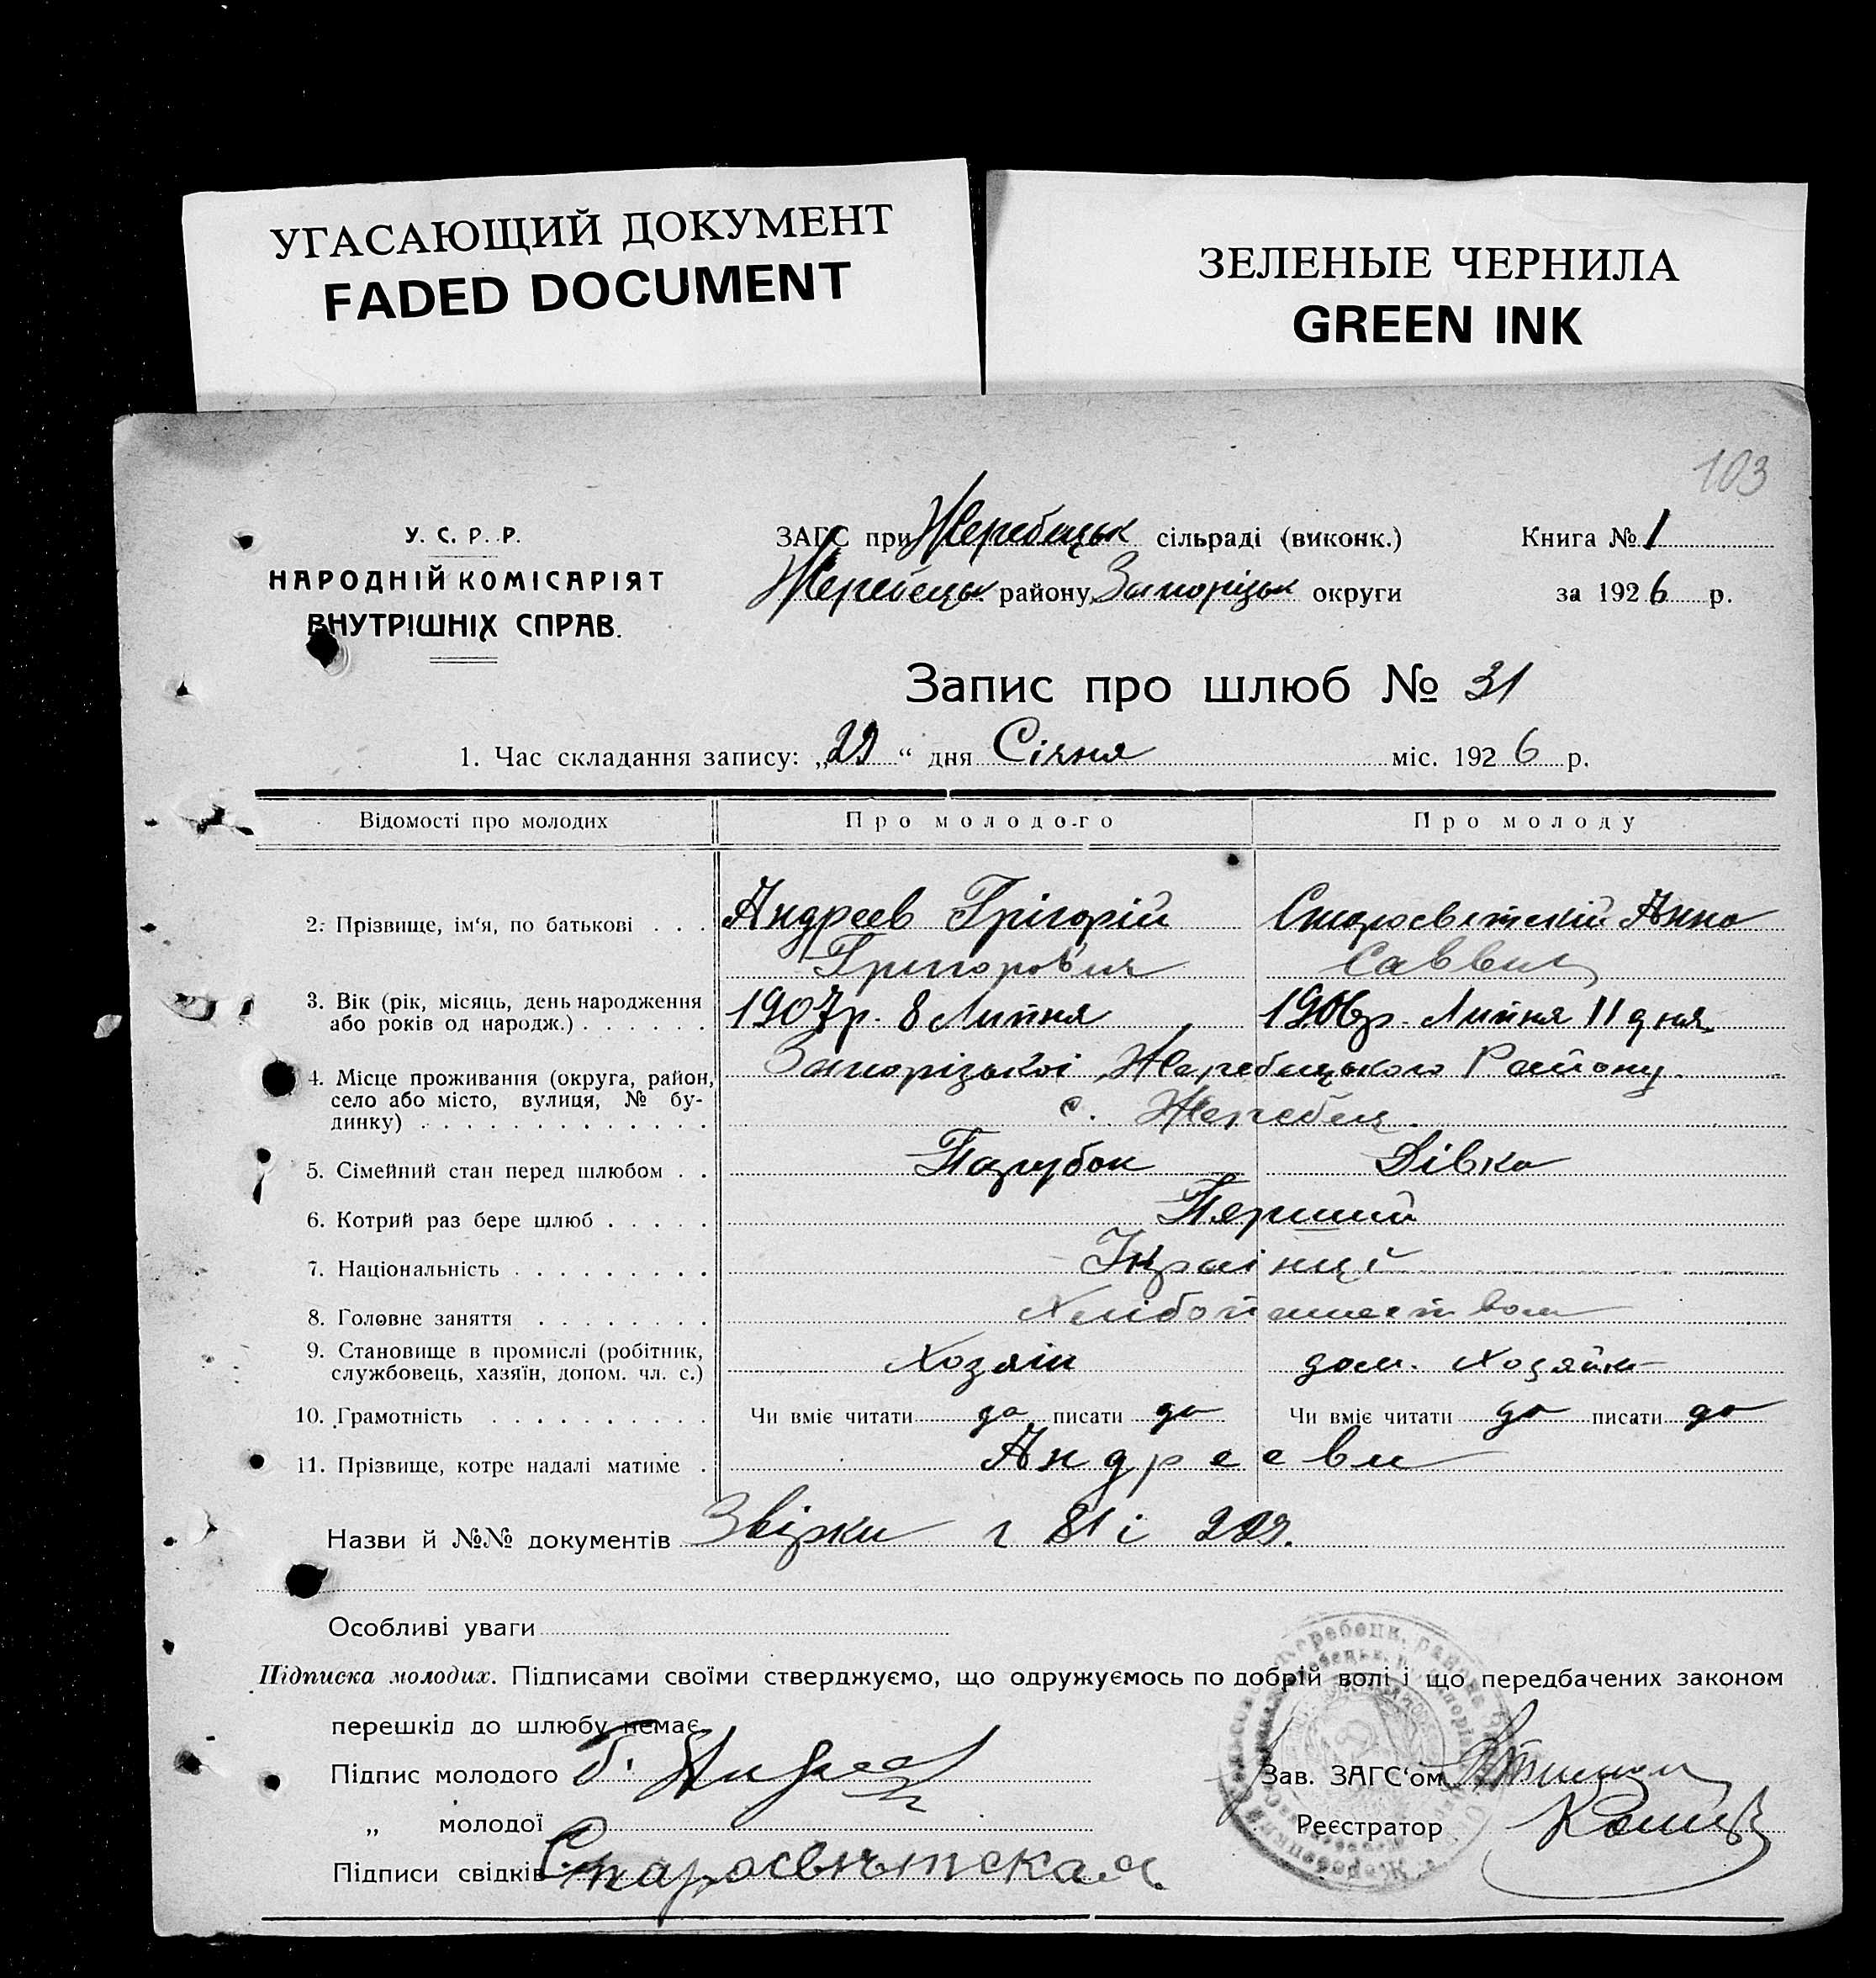 УГАСАЮЩИЙ ДОКУМЕНТ
FADED DOCUMENT
ЗЕЛЕНЫЕ ЧЕРНИЛА
GREEN INK
103
У. С. Р. Р.
НАРОДНІЙ КОМІСАРІЯТ
ВНУТРІШНІХ СПРАВ.
ЗАГС при Жеребецьк сільраді (виконк.)
Жеребецьк району Запорізьк округи
Книга № 1
за 1926 р.
Запис про шлюб № 31
1. Час складання запису: „29“ дня Січня міс. 1926 р.
Відомості про молодих Про молодого Про молоду
2. Прізвище, ім'я, по батькові . . . Андреев Грігорій Старосветскій Анна
Григоровіч Савввн
3. Вік (рік, місяць, день народження
або років од народж.) . . . . . . 1907р. 8 Липня 1906р. Липня 11 дня
4. Місце проживання (округа, район,
село або місто, вулиця, № бу-
динку) . . . . . . . . . . . . . Запорізькоі Жеребецького Району
с. Жеребец.
5. Сімейний стан перед шлюбом . . Парубок Дівка
6. Котрий раз бере шлюб . . . . . Перший
7. Національність . . . . . . . . . Украінці
8. Головне заняття . . . . . . . . Хлібопашеством
9. Становище в промислі (робітник,
службовець, хазяїн, допом. чл. с.) Хозяін дом. Хозяйк
10. Грамотність . . . . . . . . . . Чи вміє читати да писати да Чи вміє читати да писати да
11. Прізвище, котре надалі матиме . Андрееви
Назви й №№ документів Звірки 81 і 229.
Особливі уваги
Підписка молодих. Підписами своїми стверджуємо, що одружуємось по добрій волі і що передбачених законом
перешкід до шлюбу немає.
Підпис молодого Г. Андреев
„ молодої
Підписи свідків Старосвѣтская
Зав. ЗАГС'ом
Реєстратор